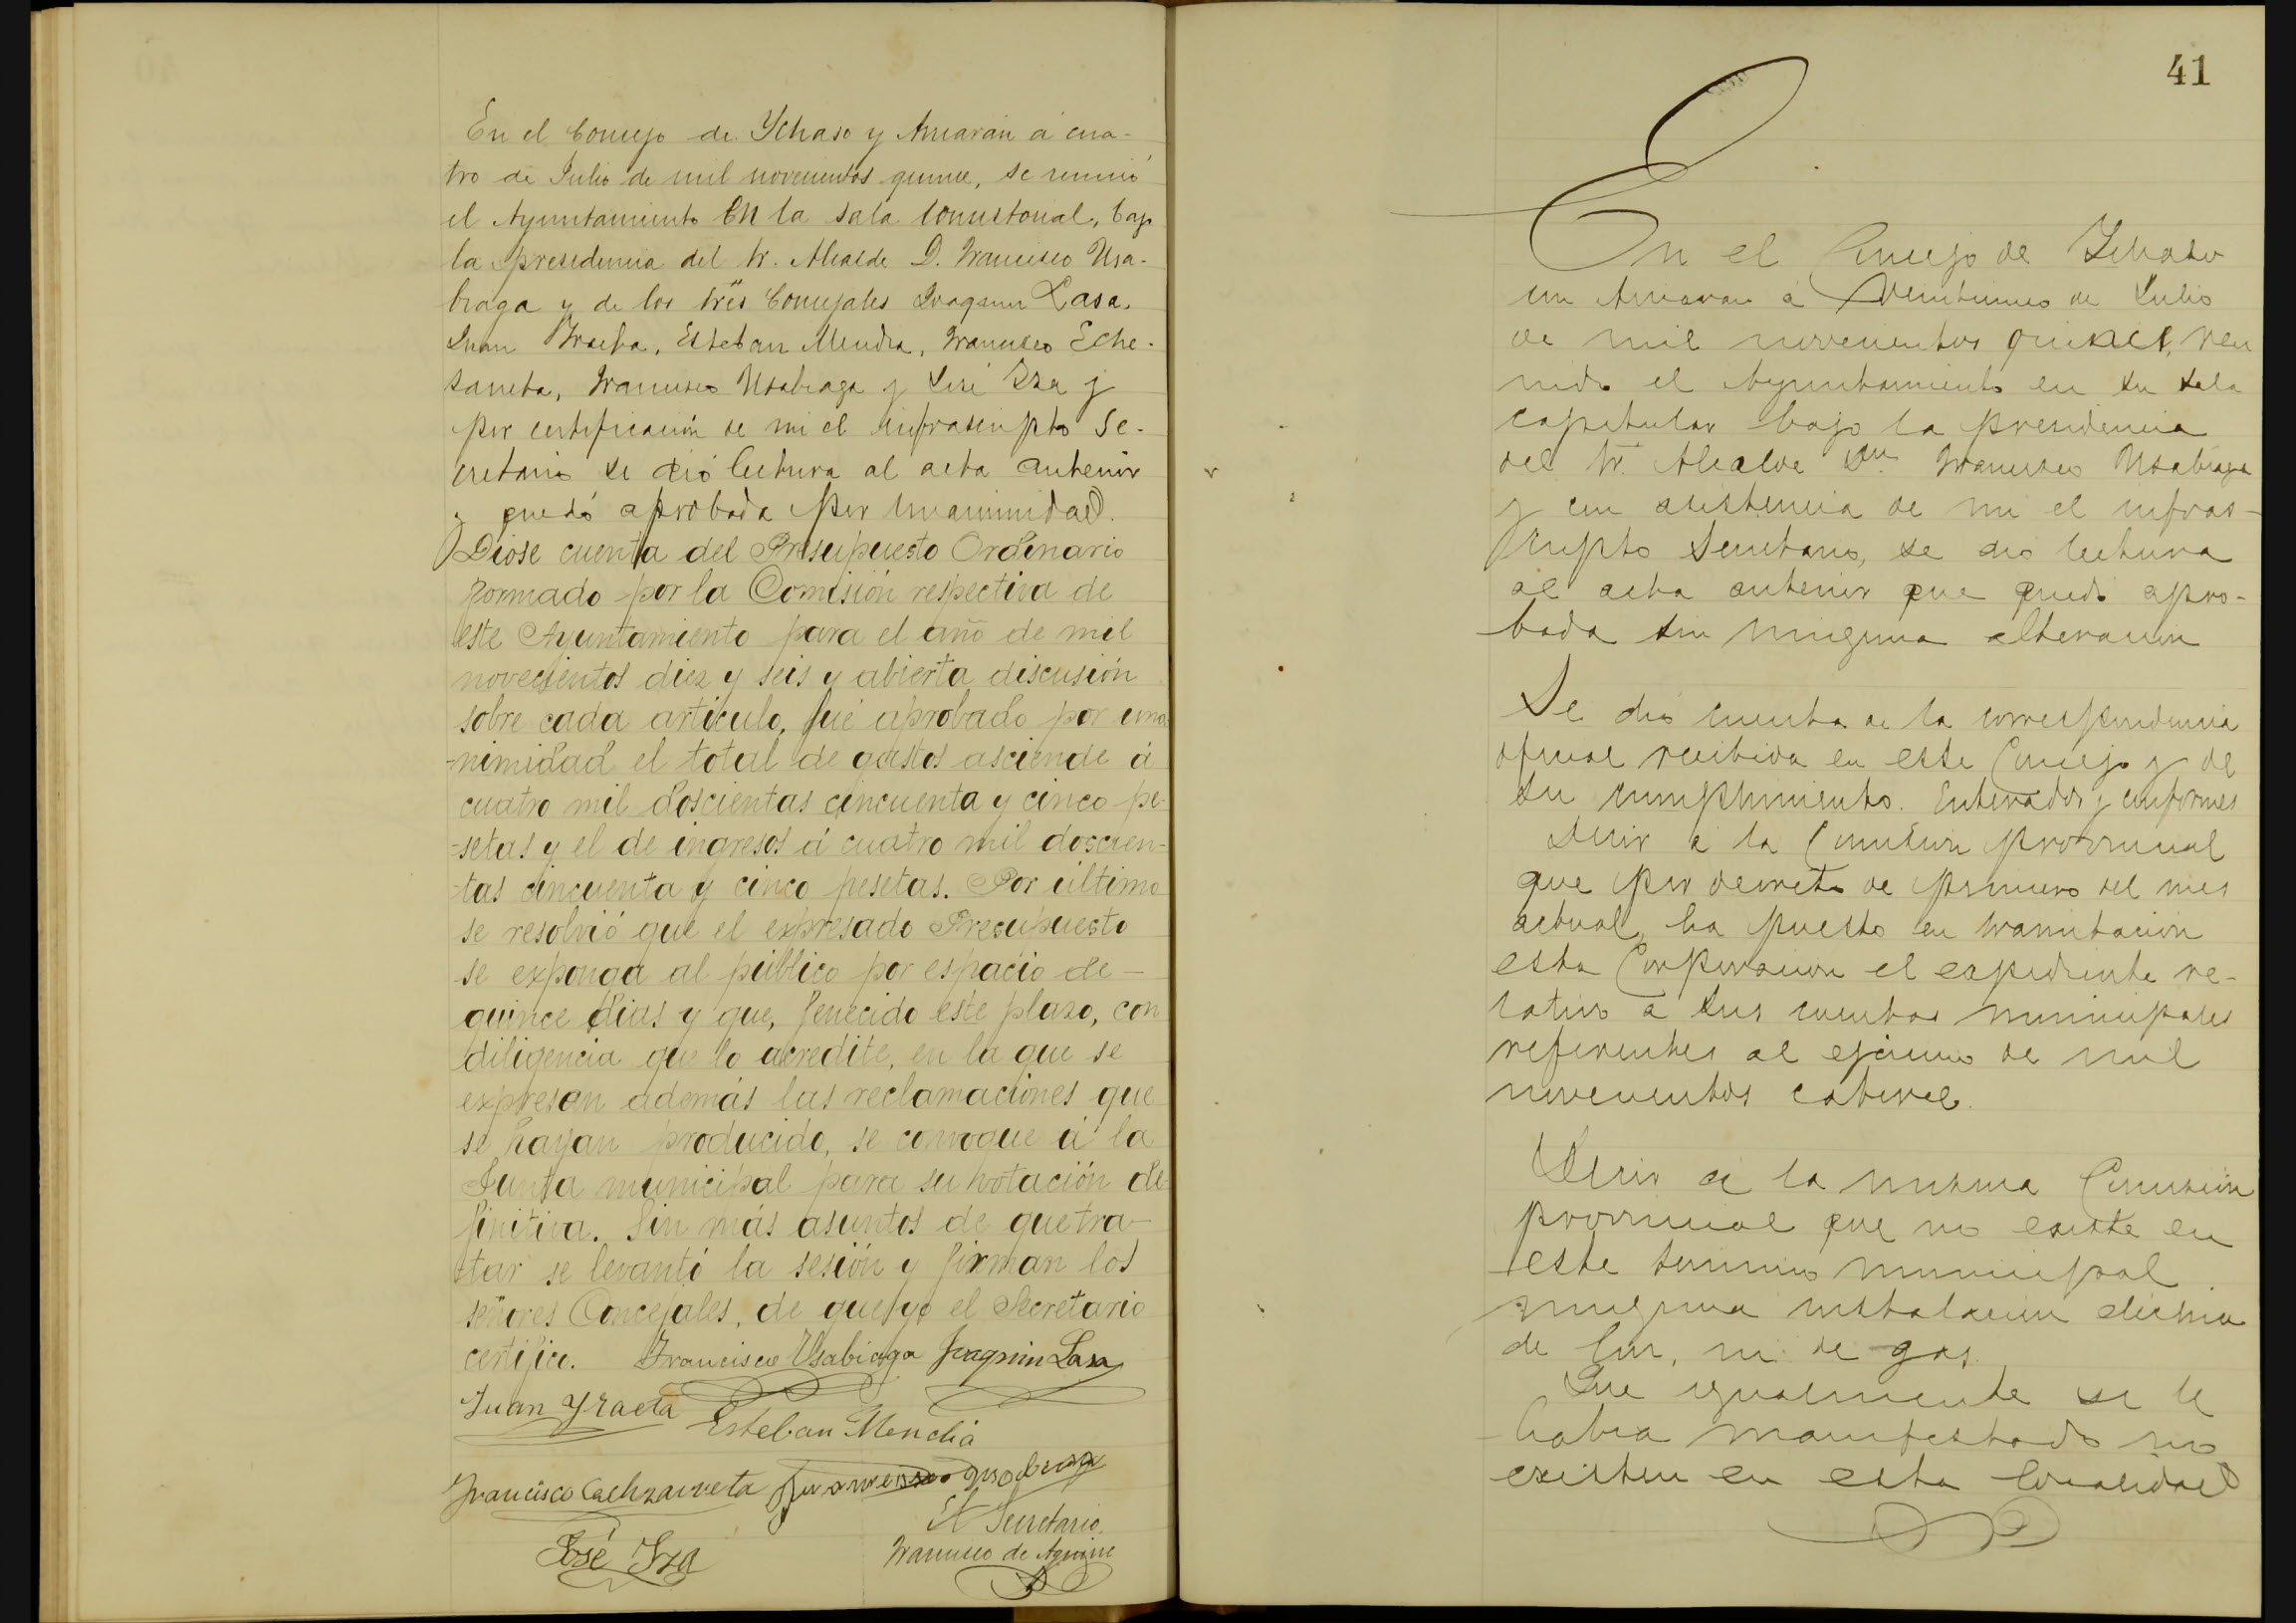 En el Concejo de Ychaso y Arriarán á cua-
tro de Julio de mil novecientos quince, se reunió
el Ayuntamiento en la sala consistorial, bajo
la presidencia del Sr. Alcalde D. Francisco Usa-
biaga y de los Sres Concejales Joaquin Lasa,
Juan Yraeta, Esteban Mendia, Francisco Eche-
zarreta, Francisco Usabiaga y José Iza y
por certificación de mi el infrascripto Se-
cretario se dió lectura al acta anterior
y quedó aprobada por unanimidad.
Dióse cuenta del Presupuesto Ordinario
formado por la Comisión respectiva de
este Ayuntamiento para el año de mil
novecientos diez y seis y abierta discusión
sobre cada artículo, fué aprobado por una
-nimidad el total de gastos asciende á
cuatro mil doscientas cincuenta y cinco pe-
-setas y el de ingresos á cuatro mil doscien-
-tas cincuenta y cinco pesetas. Por último
se resolvió que el expresado Presupuesto
se exponga al público por espacio de -
quince dias y que, fenecido este plazo, con
diligencia que lo acredite, en la que se
expresen además las reclamaciones que
se hayan producido, se convoque á la
Junta municipal para su votación de-
finitiva. Sin más asuntos de que tra-
-tar se levantó la sesión y firman los
señores Concejales, de que yo el Secretario
certifico. Francisco Usabiaga Joaquin Lasa
Juan Yraeta
Esteban Mendia
Francisco Echezarreta Francisco Usabiaga
El Secretario
José Iza Francisco de Aguirre
41
En el Concejo de Ichaso
en Arriaran á veinticinco de Julio
de mil novecientos quince, reu
nido el Ayuntamiento en su sala
capitular bajo la presidencia
del Sr. Alcalde Dn. Francisco Usabiaga
y con asistencia de mi el infras-
cripto Secretario, se dio lectura
al acta anterior que quedó apro-
bada sin ninguna alteración
Se dió cuenta de la correspondencia
oficial recibida en este Concejo y de
su cumplimiento. Enterados y conformes
Decir a la Comisión provincial
que por decreto de primero del mes
actual, ha puesto en tramitación
esta Corporación el expediente re-
lativo a sus cuentas municipales
referentes al ejercicio de mil
novecientos catorce.
Decir á la misma Comisión
provincial que no existe en
este termino municipal
ninguna instalación electrica
de luz, ni de gas.
Que igualmente se le
habia manifestado no
existen en esta localidad